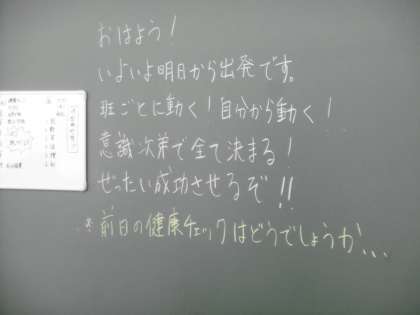 おはよう！
いよいよ明日から出発です。
班ごとに動く！自分から動く！
意識次第で全て決まる！
ぜったい成功させるぞ！！
*前日の健康チェックはどうでしょうか、、、